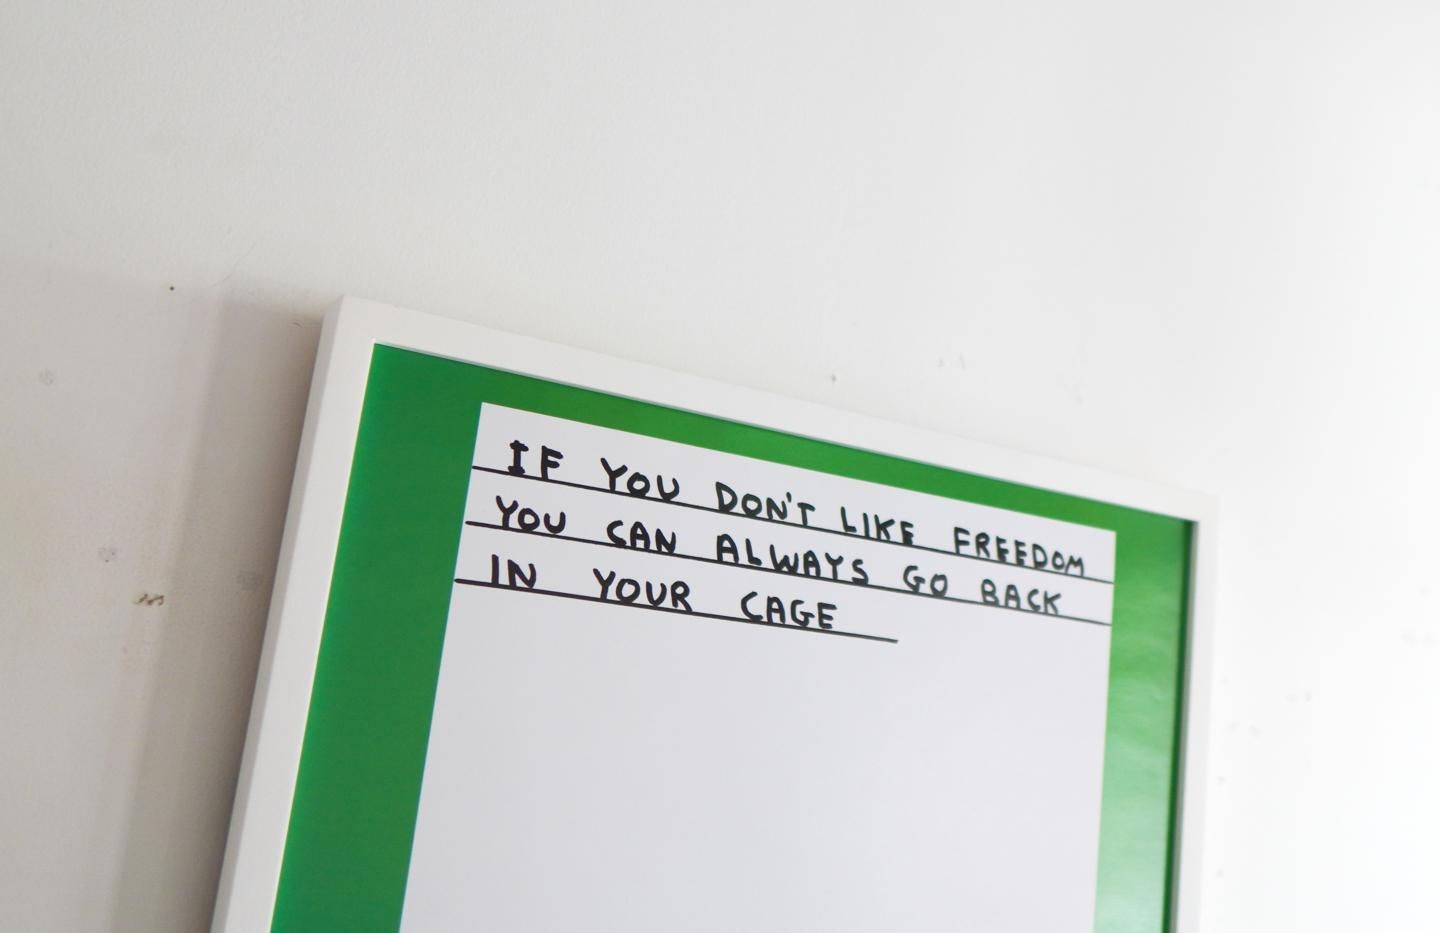 IF YOU DON'T LIKE FREEDOM
YOU CAN ALWAYS GO BACK
IN YOUR CAGE